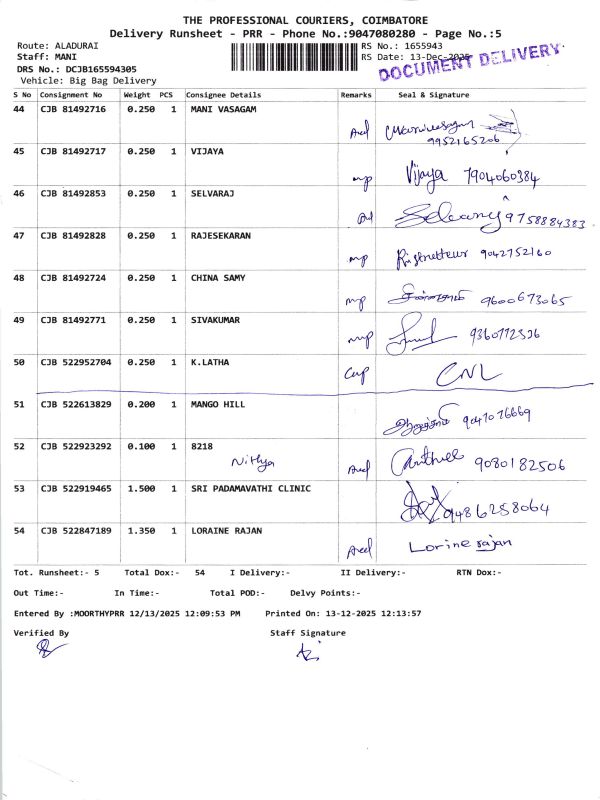 THE PROFESSIONAL COURIERS, COIMBATORE
Delivery Runsheet - PRR - Phone No.:9047080280 - Page No.:5
Route: ALADURAI RS No.: 1655943
Staff: MANI RS Date: 13-Dec-2025
DRS No.: DCJB165594305
Vehicle: Big Bag Delivery
DOCUMENT DELIVERY
S No Consignment No Weight PCS Consignee Details Remarks Seal & Signature
44 CJB 81492716 0.250 1 MANI VASAGAM
9952165206
45 CJB 81492717 0.250 1 VIJAYA
Vijaya 7904060384
46 CJB 81492853 0.250 1 SELVARAJ
9758884383
47 CJB 81492828 0.250 1 RAJESEKARAN
9042752160
48 CJB 81492724 0.250 1 CHINA SAMY
9600673065
49 CJB 81492771 0.250 1 SIVAKUMAR
50 CJB 522952704 0.250 1 K.LATHA
CNL
51 CJB 522613829 0.200 1 MANGO HILL
9047076669
52 CJB 522923292 0.100 1 8218
Nithya 9080182506
53 CJB 522919465 1.500 1 SRI PADAMAVATHI CLINIC
9486258064
54 CJB 522847189 1.350 1 LORAINE RAJAN
Lorine rajan
Tot. Runsheet:- 5 Total Dox:- 54 I Delivery:- II Delivery:- RTN Dox:-
Out Time:- In Time:- Total POD:- Delvy Points:-
Entered By :MOORTHYPRR 12/13/2025 12:09:53 PM Printed On: 13-12-2025 12:13:57
Verified By Staff Signature